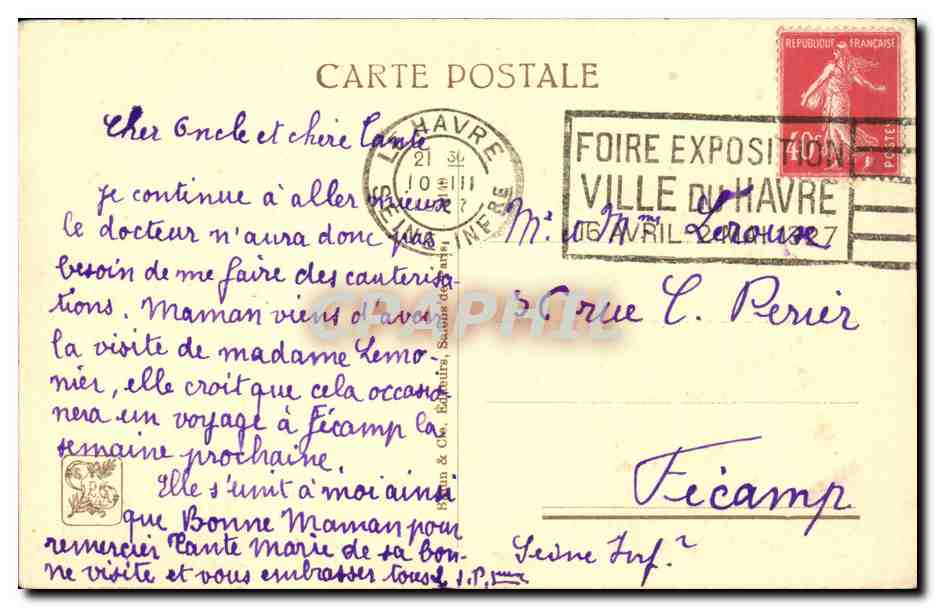 CARTE POSTALE
REPUBLIQUE FRANÇAISE
40c
POSTES
LE HAVRE
21 30
10 III
SEINE INFRE
FOIRE EXPOSITION
VILLE DU HAVRE
16 AVRIL - 2 MAI 1927
Cher Oncle et chère Tante
Je continue à aller mieux
le docteur n'aura donc pas
besoin de me faire des cauterisa-
tions. Maman viens d'avoir
la visite de madame Lemo-
nier, elle croit que cela occasio-
nera un voyage à Fécamp la
semaine prochaine.
Elle s'unit à moi ainsi
que Bonne Maman pour
remercier Tante Marie de sa bon-
ne visite et vous embrasser tous
Mr et Mme
36 rue C. Perier
Fécamp
Seine Infr
& Cie, Editeurs, Salons de Paris
CPAPHIL